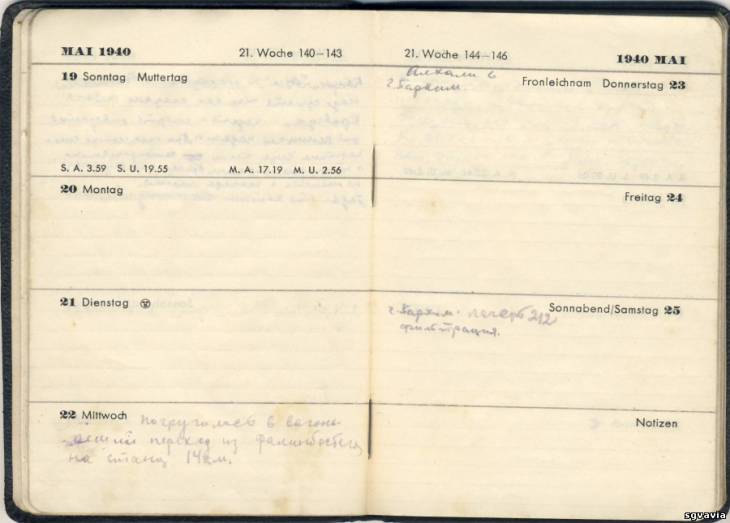 MAI 1940
21. Woche 140–143
19 Sonntag Muttertag
S. A. 3.59 S. U. 19.55 M. A. 17.19 M. U. 2.56
20 Montag
21 Dienstag
22 Mittwoch Погрузились в вагоны
пеший переход из
на станц 14км.
21. Woche 144–146
1940 MAI
Fronleichnam Donnerstag 23
г. Пархим.
Freitag 24
Sonnabend/Samstag 25
г. Пархим. лагерь 212
фильтрация.
Notizen
sgvavia